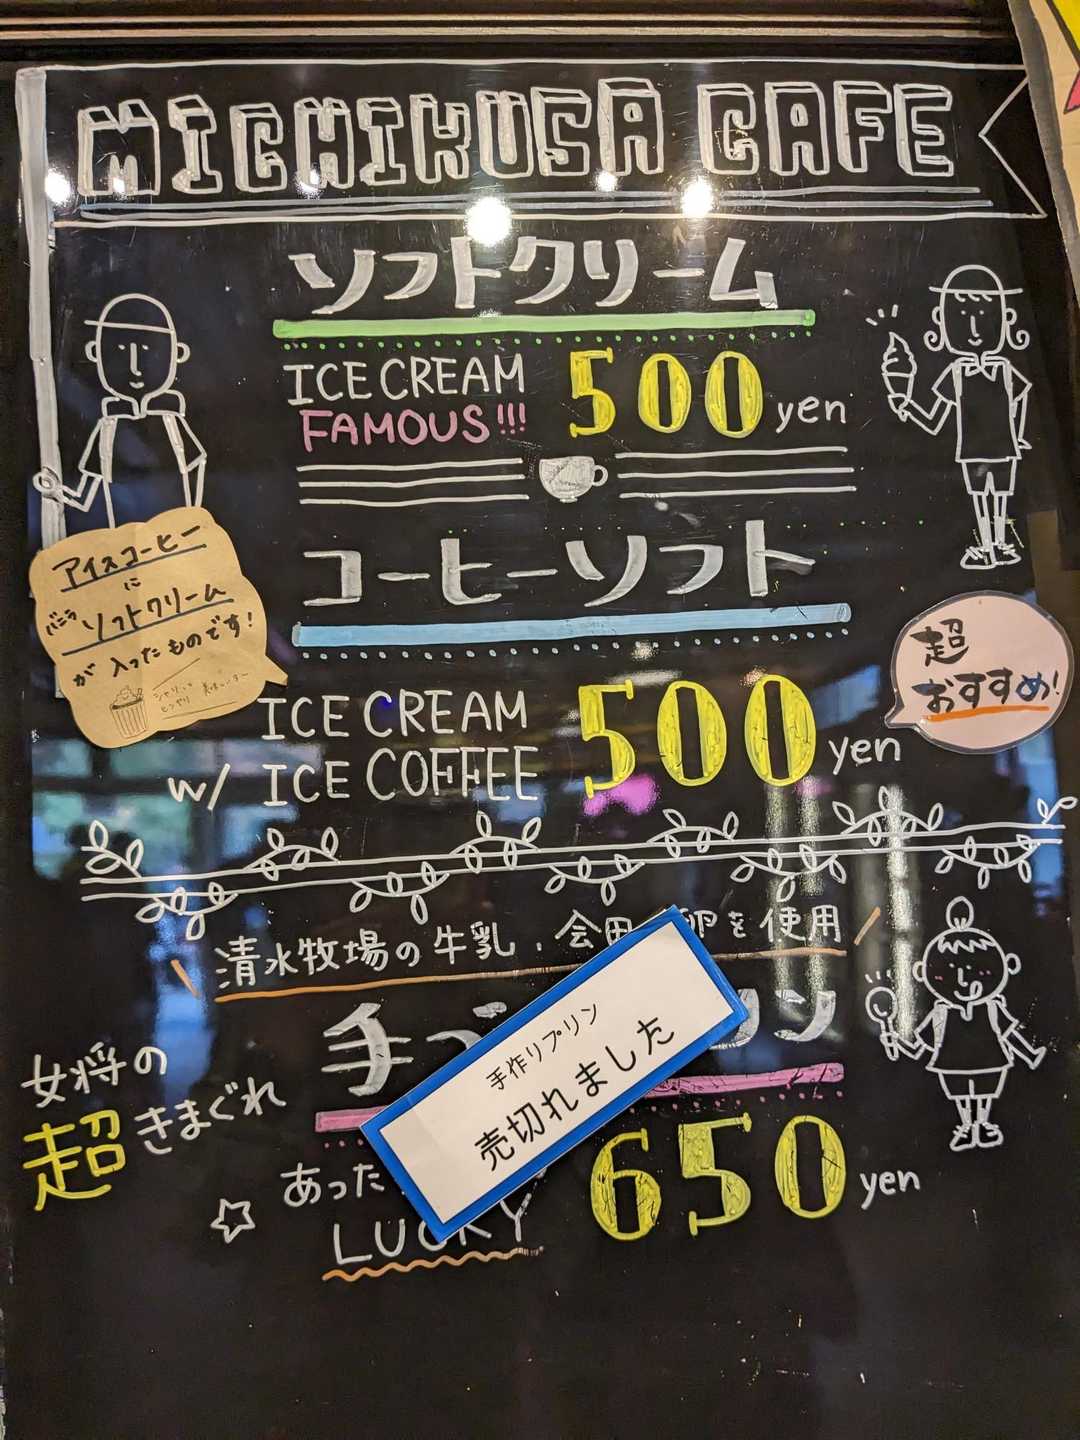 MICHIKUSA CAFE
ソフトクリーム
ICE CREAM
FAMOUS!!!
500 yen
コーヒーソフト
アイスコーヒー
に
バニラ ソフトクリーム
が 入ったものです!
超
おすすめ!
ICE CREAM
w/ ICE COFFEE
500 yen
清水牧場の牛乳、会田 卵を使用
手づ リン
手作りプリン
売切れました
女将の
超きまぐれ
あった
LUCKY
650 yen